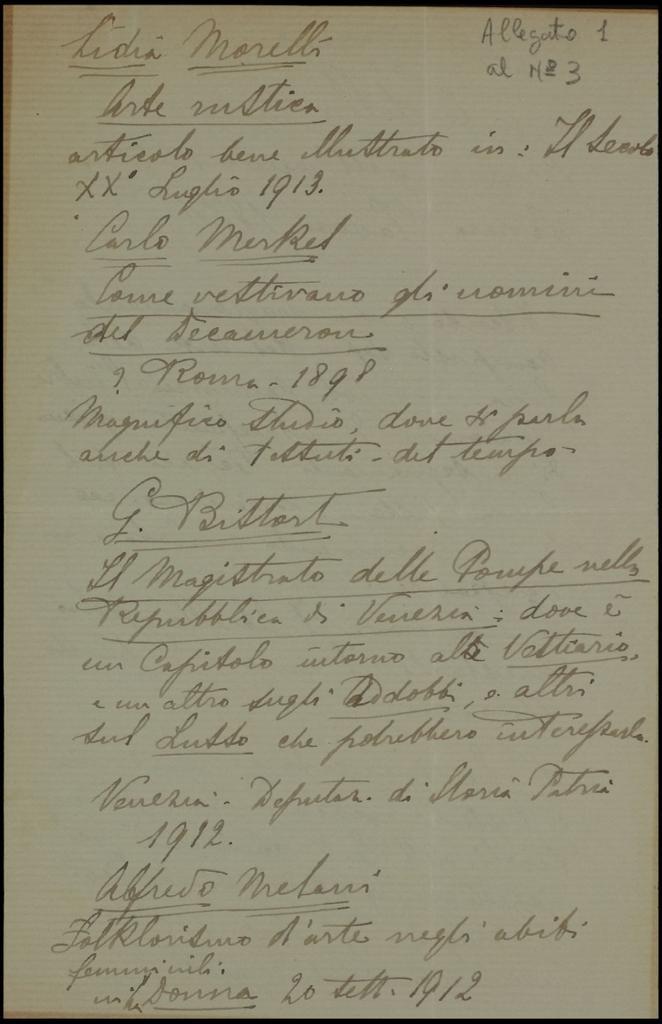 Allegato 1
al Nº 3
Lidia Morelli
Arte rustica
articolo bene illustrato in: Il Secolo
XXº Luglio 1913.
Carlo Merkel
Come vestivano gli uomini
del Decameron
? Roma - 1898
Magnifico studio, dove si parla
anche di tessuti del tempo -
G. Bistort
Il Magistrato delle Pompe nella
Repubblica di Venezia: dove è
un Capitolo intorno al Vestiario,
e un altro sugli Addobbi, e altri
sul Lusso che potrebbero interessarla.
Venezia - Deputaz. di Storia Patria
1912.
Alfredo Melani
Folklorismo d'arte negli abiti
femminili:
nella Donna 20 sett. 1912